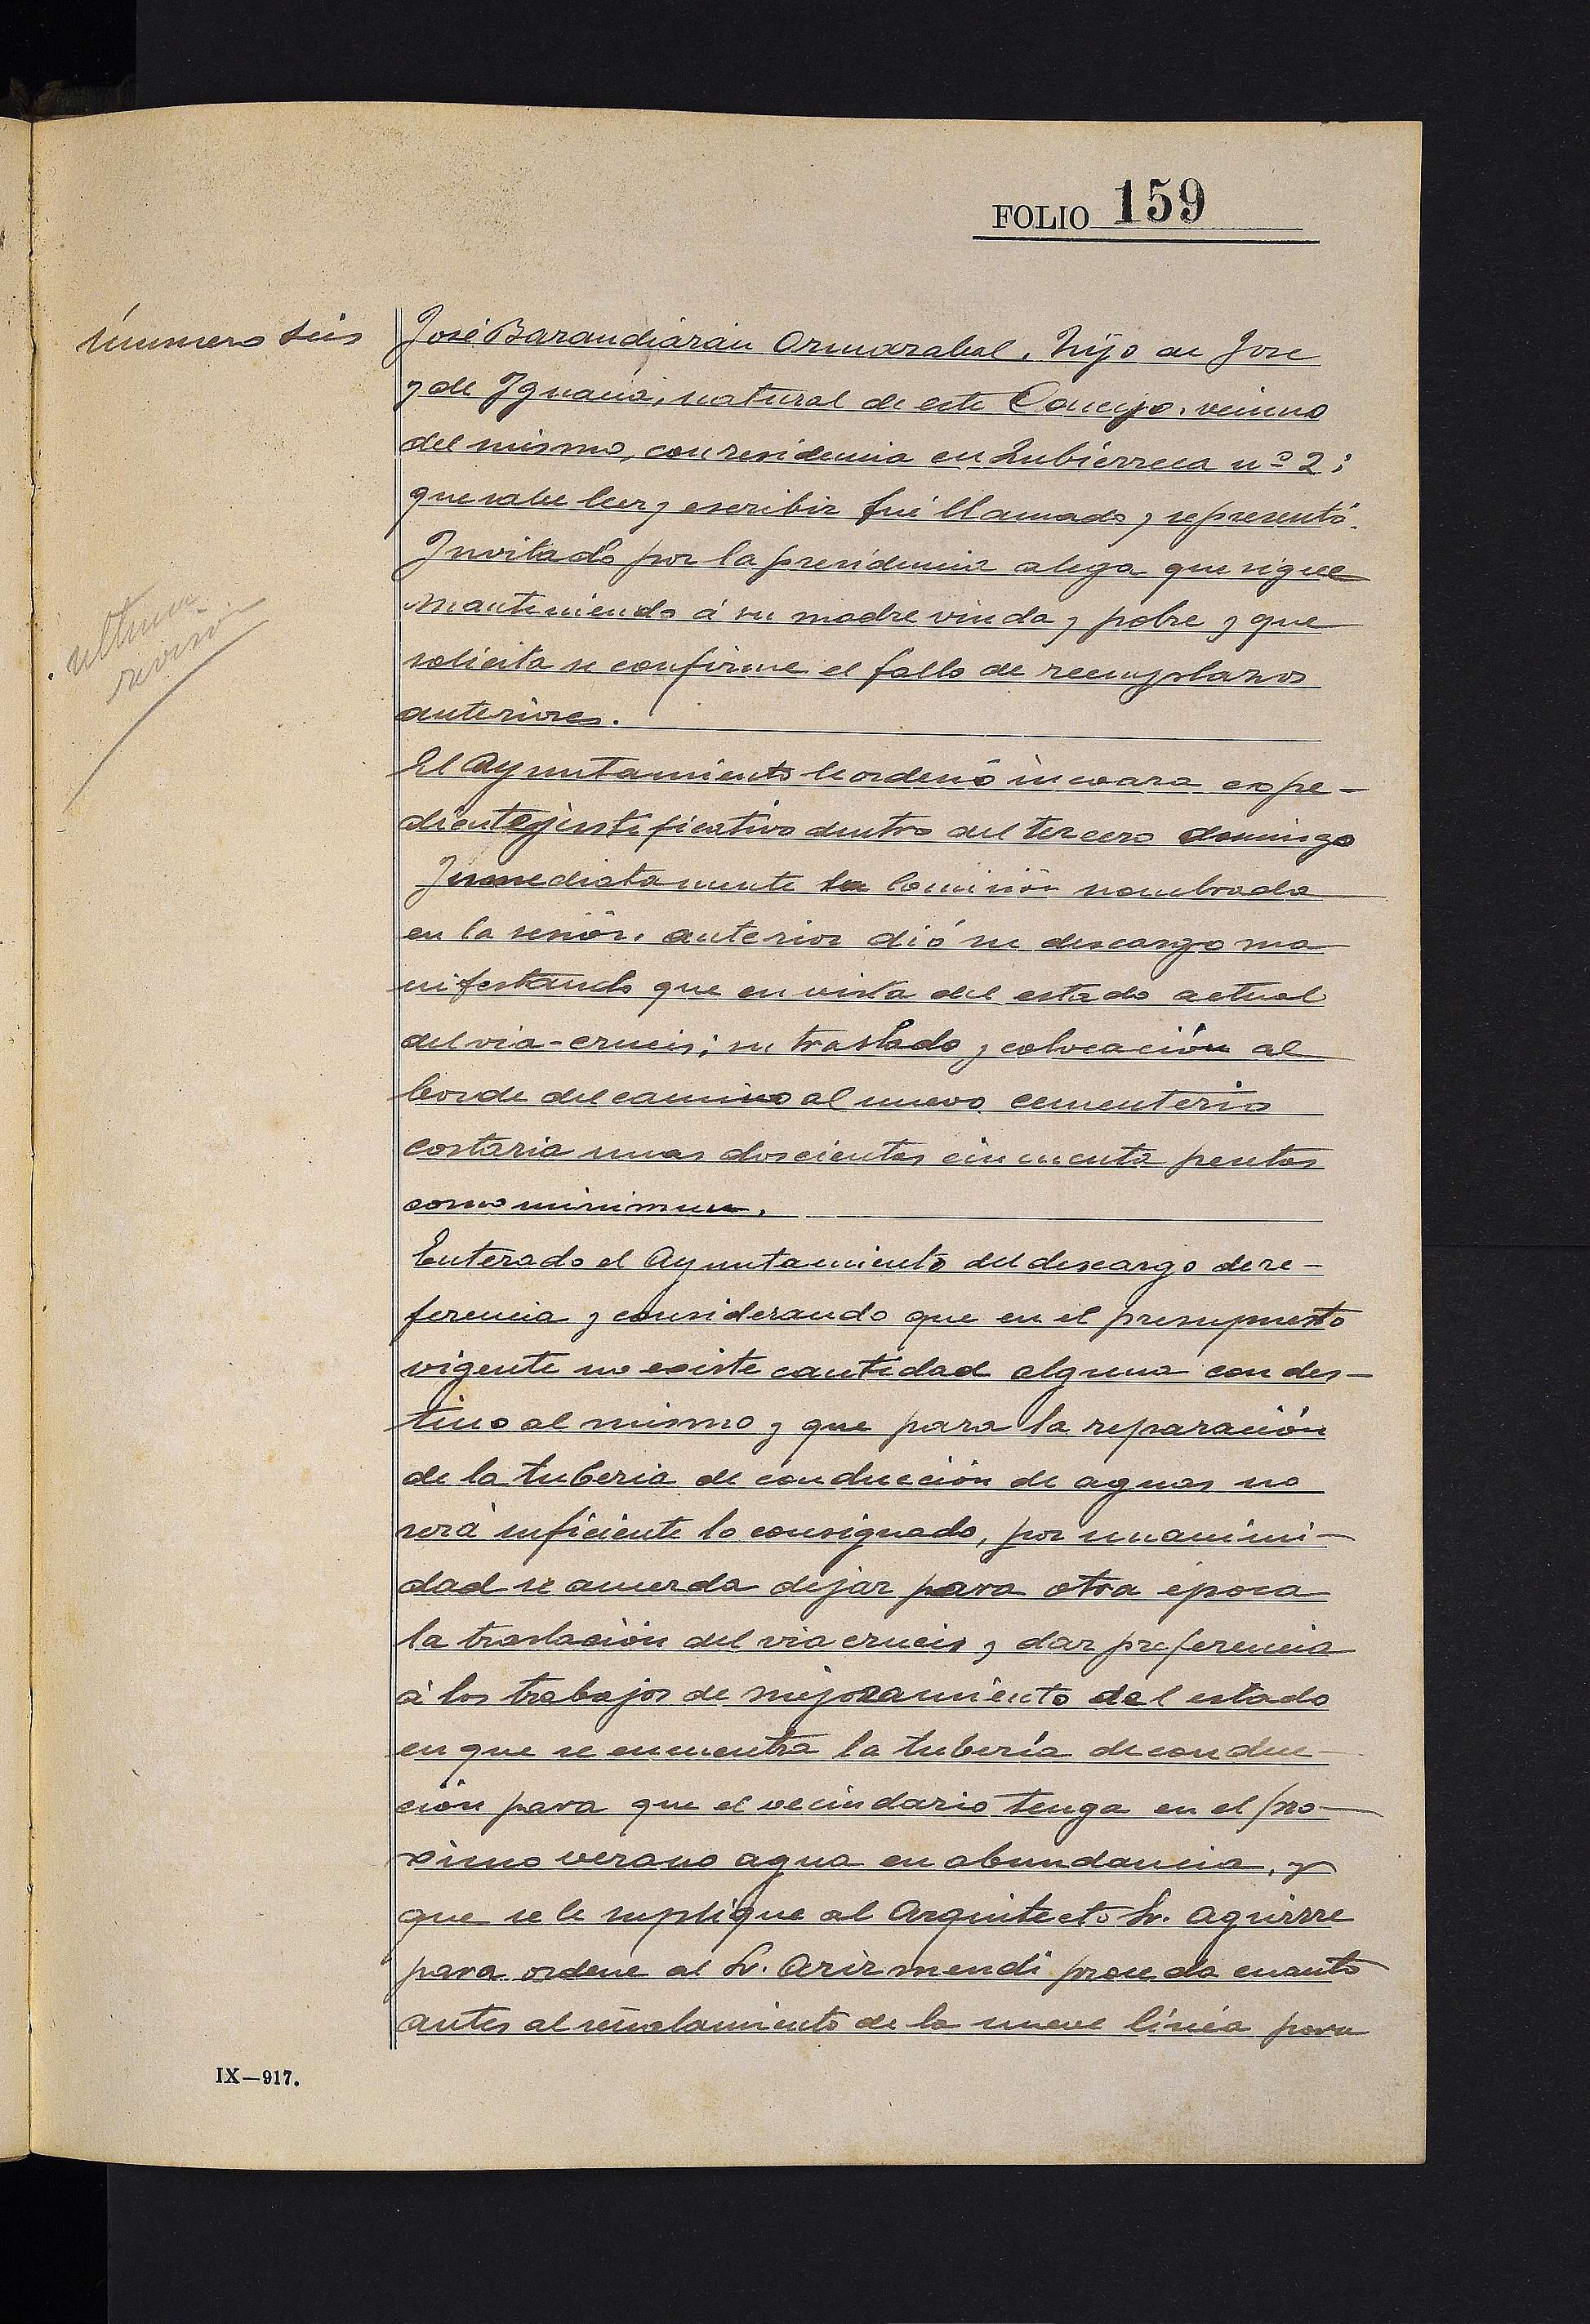 FOLIO 159
número seis
José Barandiarán Ormazabal, hijo de José
y de Ignacia, natural de este Concejo, vecino
del mismo, con residencia en Zubierreca nº 2;
que sabe leer y escribir fué llamado y se presentó.
Invitado por la presidencia alega que sigue
manteniendo á su madre viuda y pobre y que
solicita se confirme el fallo de reemplazos
anteriores.
ultima
revisión
El Ayuntamiento le ordenó incoara expe-
diente justificativo dentro del tercero domingo
Inmediatamente la Comisión nombrada
en la sesión anterior dió su descargo ma
nifestando que en vista del estado actual
del via-crucis; su traslado y colocación al
borde del camino al nuevo cementerio
costaria unas doscientas cincuenta pesetas
como minimun.
Enterado el Ayuntamiento del descargo de re-
ferencia y considerando que en el presupuesto
vigente no existe cantidad alguna con des-
tino al mismo y que para la reparación
de la tuberia de conducción de aguas no
será suficiente lo consignado, por unanimi-
dad se acuerda dejar para otra época
la traslación del via crucis y dar preferencia
á los trabajos de mejoramiento del estado
en que se encuentra la tubería de conduc-
ción para que el vecindario tenga en el pro-
ximo verano agua en abundancia, y
que se le suplique al Arquitecto Sr. Aguirre
para ordene al Sr. Arizmendi proceda cuanto
antes al señalamiento de la nueve línea para
IX—917.